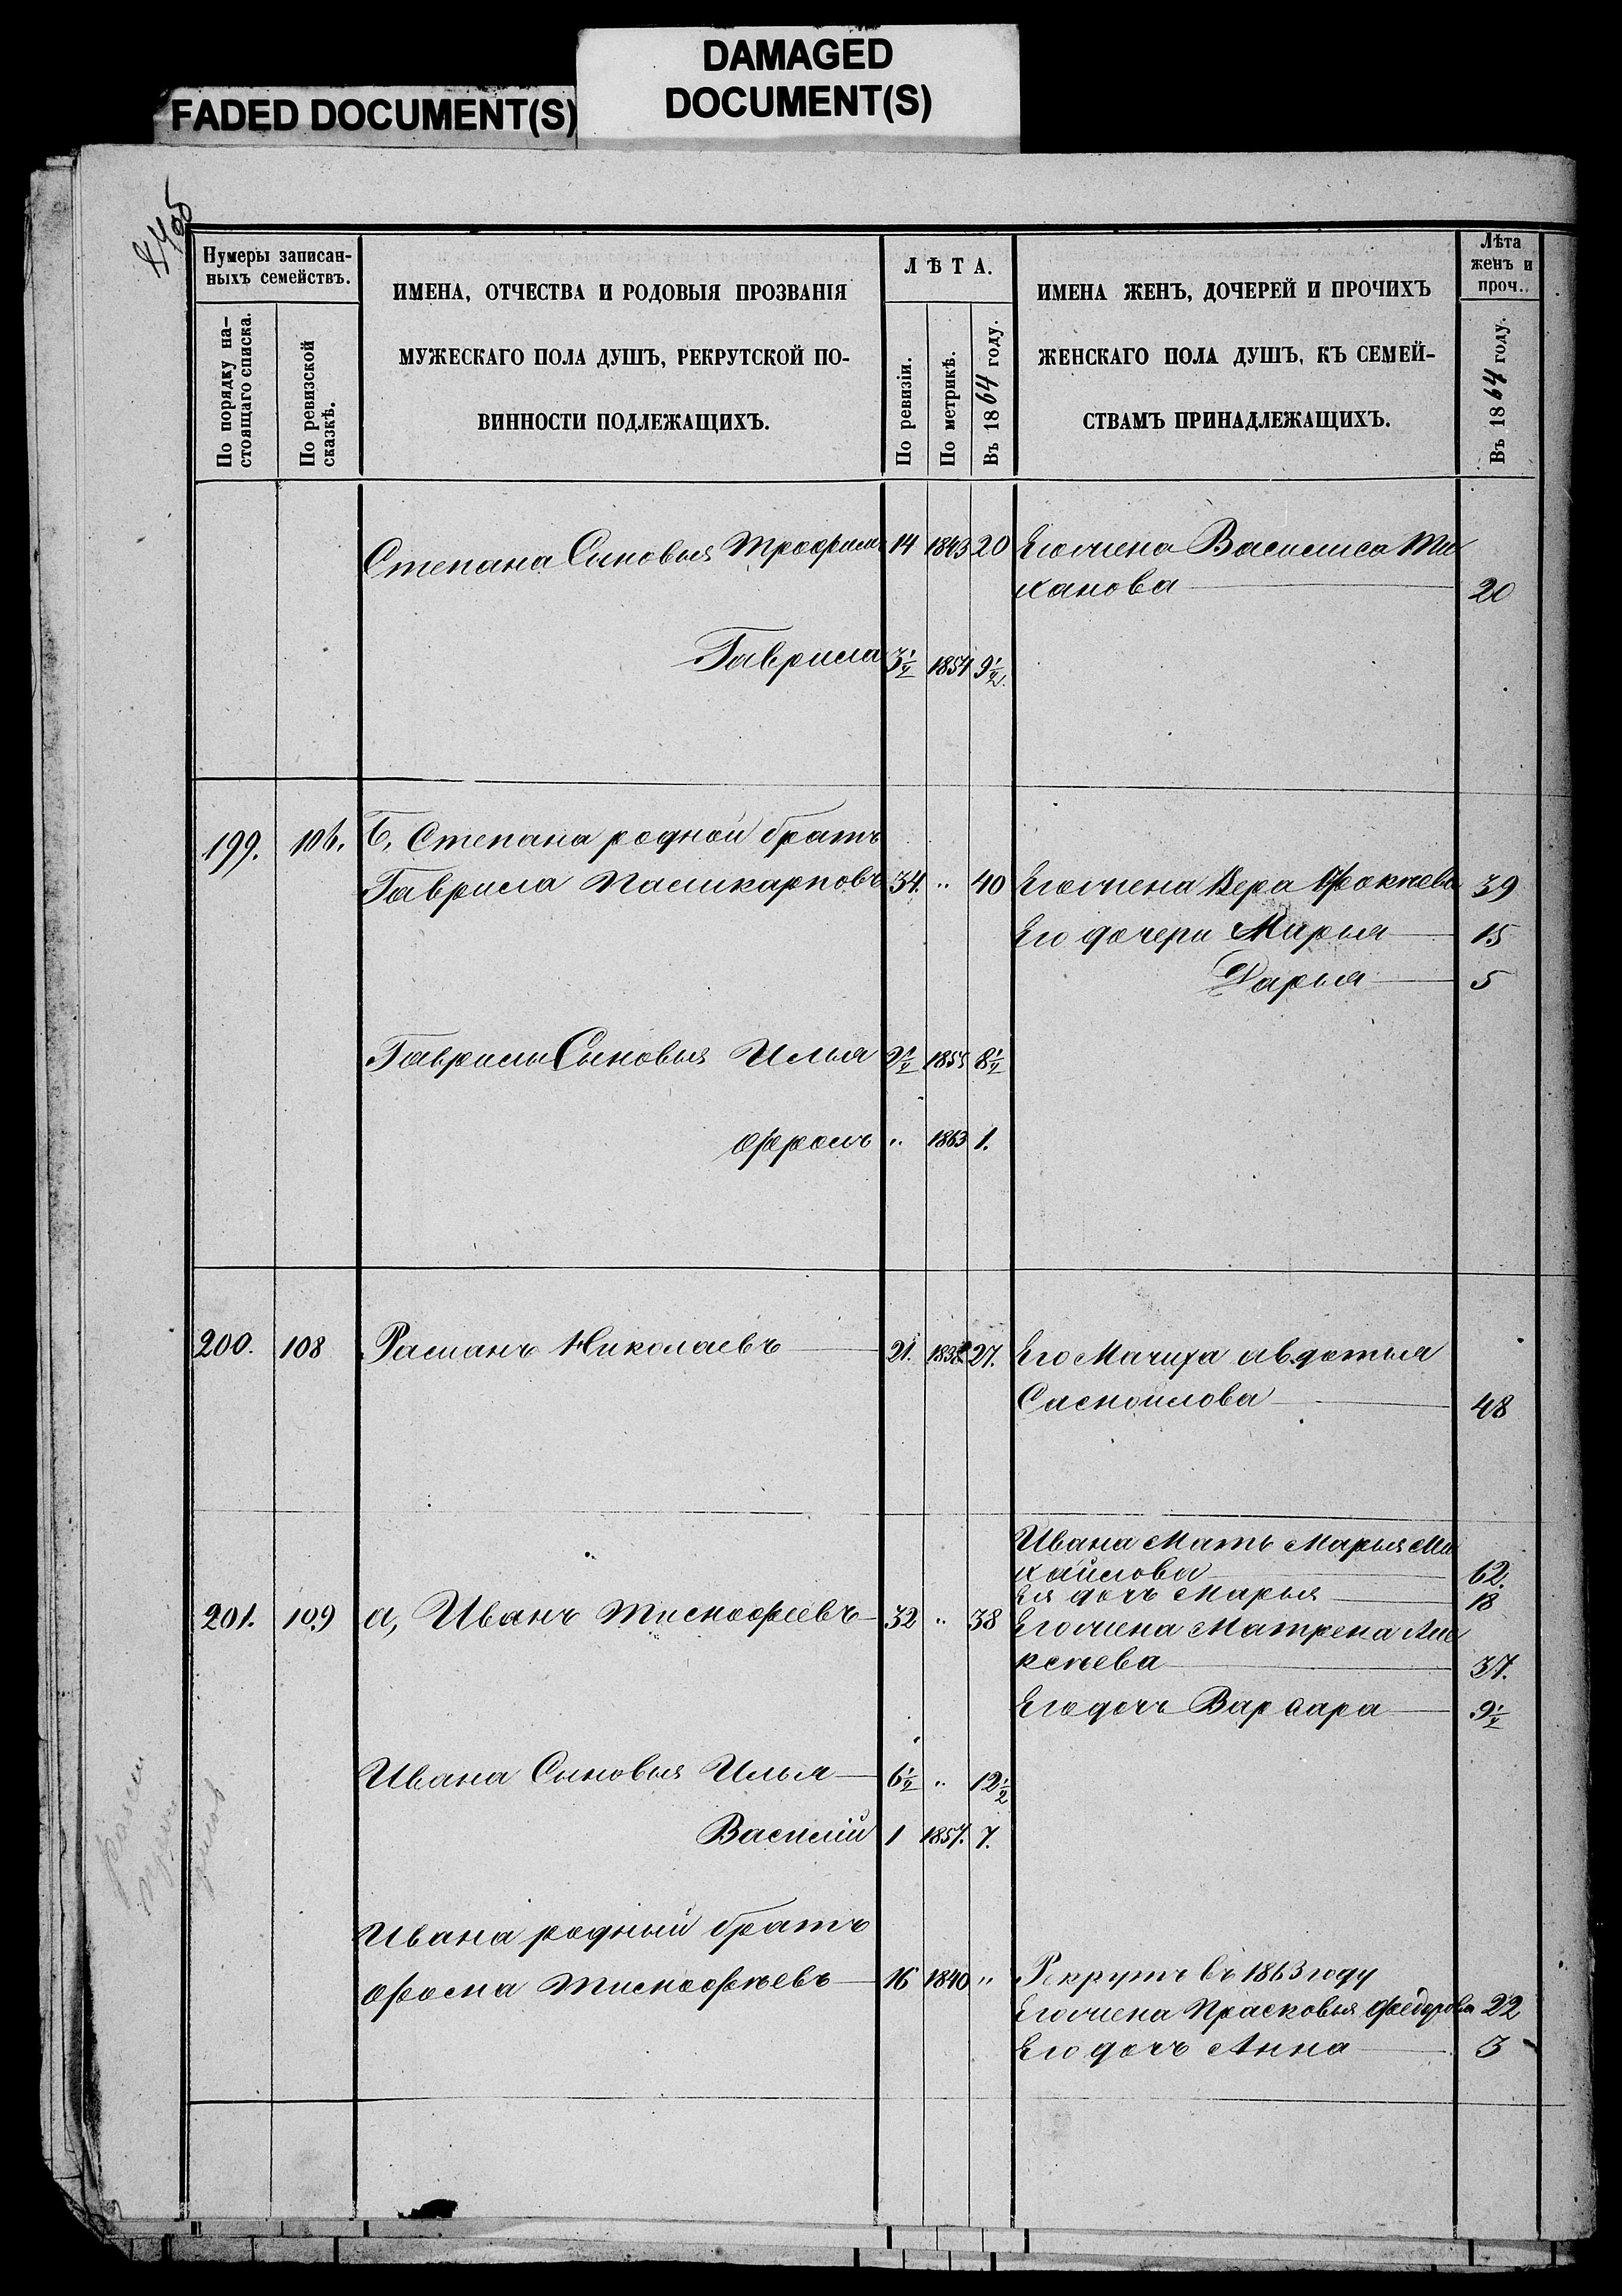 DAMAGED
DOCUMENT(S)
FADED DOCUMENT(S)
Нумеры записан-
ныхъ семействъ.
По порядку на-
стоящаго списка.
По ревизской
сказкѣ.
ИМЕНА, ОТЧЕСТВА И РОДОВЫЯ ПРОЗВАНІЯ
МУЖЕСКАГО ПОЛА ДУШЪ, РЕКРУТСКОЙ ПО-
ВИННОСТИ ПОДЛЕЖАЩИХЪ.
ЛѢТА.
По ревизіи.
По метрикѣ.
Въ 1864 году.
ИМЕНА ЖЕНЪ, ДОЧЕРЕЙ И ПРОЧИХЪ
ЖЕНСКАГО ПОЛА ДУШЪ, КЪ СЕМЕЙ-
СТВАМЪ ПРИНАДЛЕЖАЩИХЪ.
Лѣта
женъ и
проч..
Въ 1864 году.
Степана Сыновья Трофимъ 14 1843 20 Его жена Василиса
20
Гаврила 3½ 1854 9½.
199. 106. б, Степана родной братъ
Гаврила Паликарповъ 34. " 40 Его жена Вера 39
Его дочери Марья 15
Дарья 5
Гаврилы Сыновья Илья 2½ 1855 8½
Фролъ " 1863 1.
200. 108 Раманъ Николаевъ 21. 27. Его Мачиха авдотья
Самойлова 48
Ивана Мать Марья Ми
хайлова 62.
Ея дочь Марья 18
201. 109 а, Иванъ Тимофеевъ 32 " 38 Его жена Матрена Але
ксѣева 37.
Его дочь Варвара 9½
Ивана Сыновья Илья 6½ " 12½
Василій 1 1857. 7.
Ивана родный братъ
Фома Тимофѣевъ 16 1840 " Рекрутъ въ 1863 году
Его жена Прасковья Федорова 22
Его дочь Анна 3